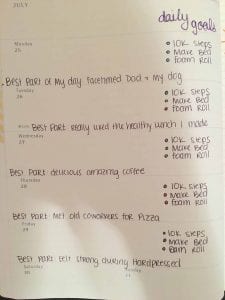 JULY
daily goals
Monday
25
• 10K Steps
• Make Bed
• Foam Roll
• Best Part of My day facetimed Dad + My dog
Tuesday
26
• 10K Steps
• Make Bed
• Foam Roll
Best Part really liked the healthy lunch I made
Wednesday
27
• 10K Steps
• Make Bed
• Foam Roll
Best Part delicious amazing coffee
Thursday
28
• 10K Steps
• Make Bed
• Foam Roll
Best Part Met old coworkers for Pizza
Friday
29
• 10K Steps
• Make Bed
• Foam Roll
Best Part felt strong during Hardpressed
Saturday
30
Sunday
31